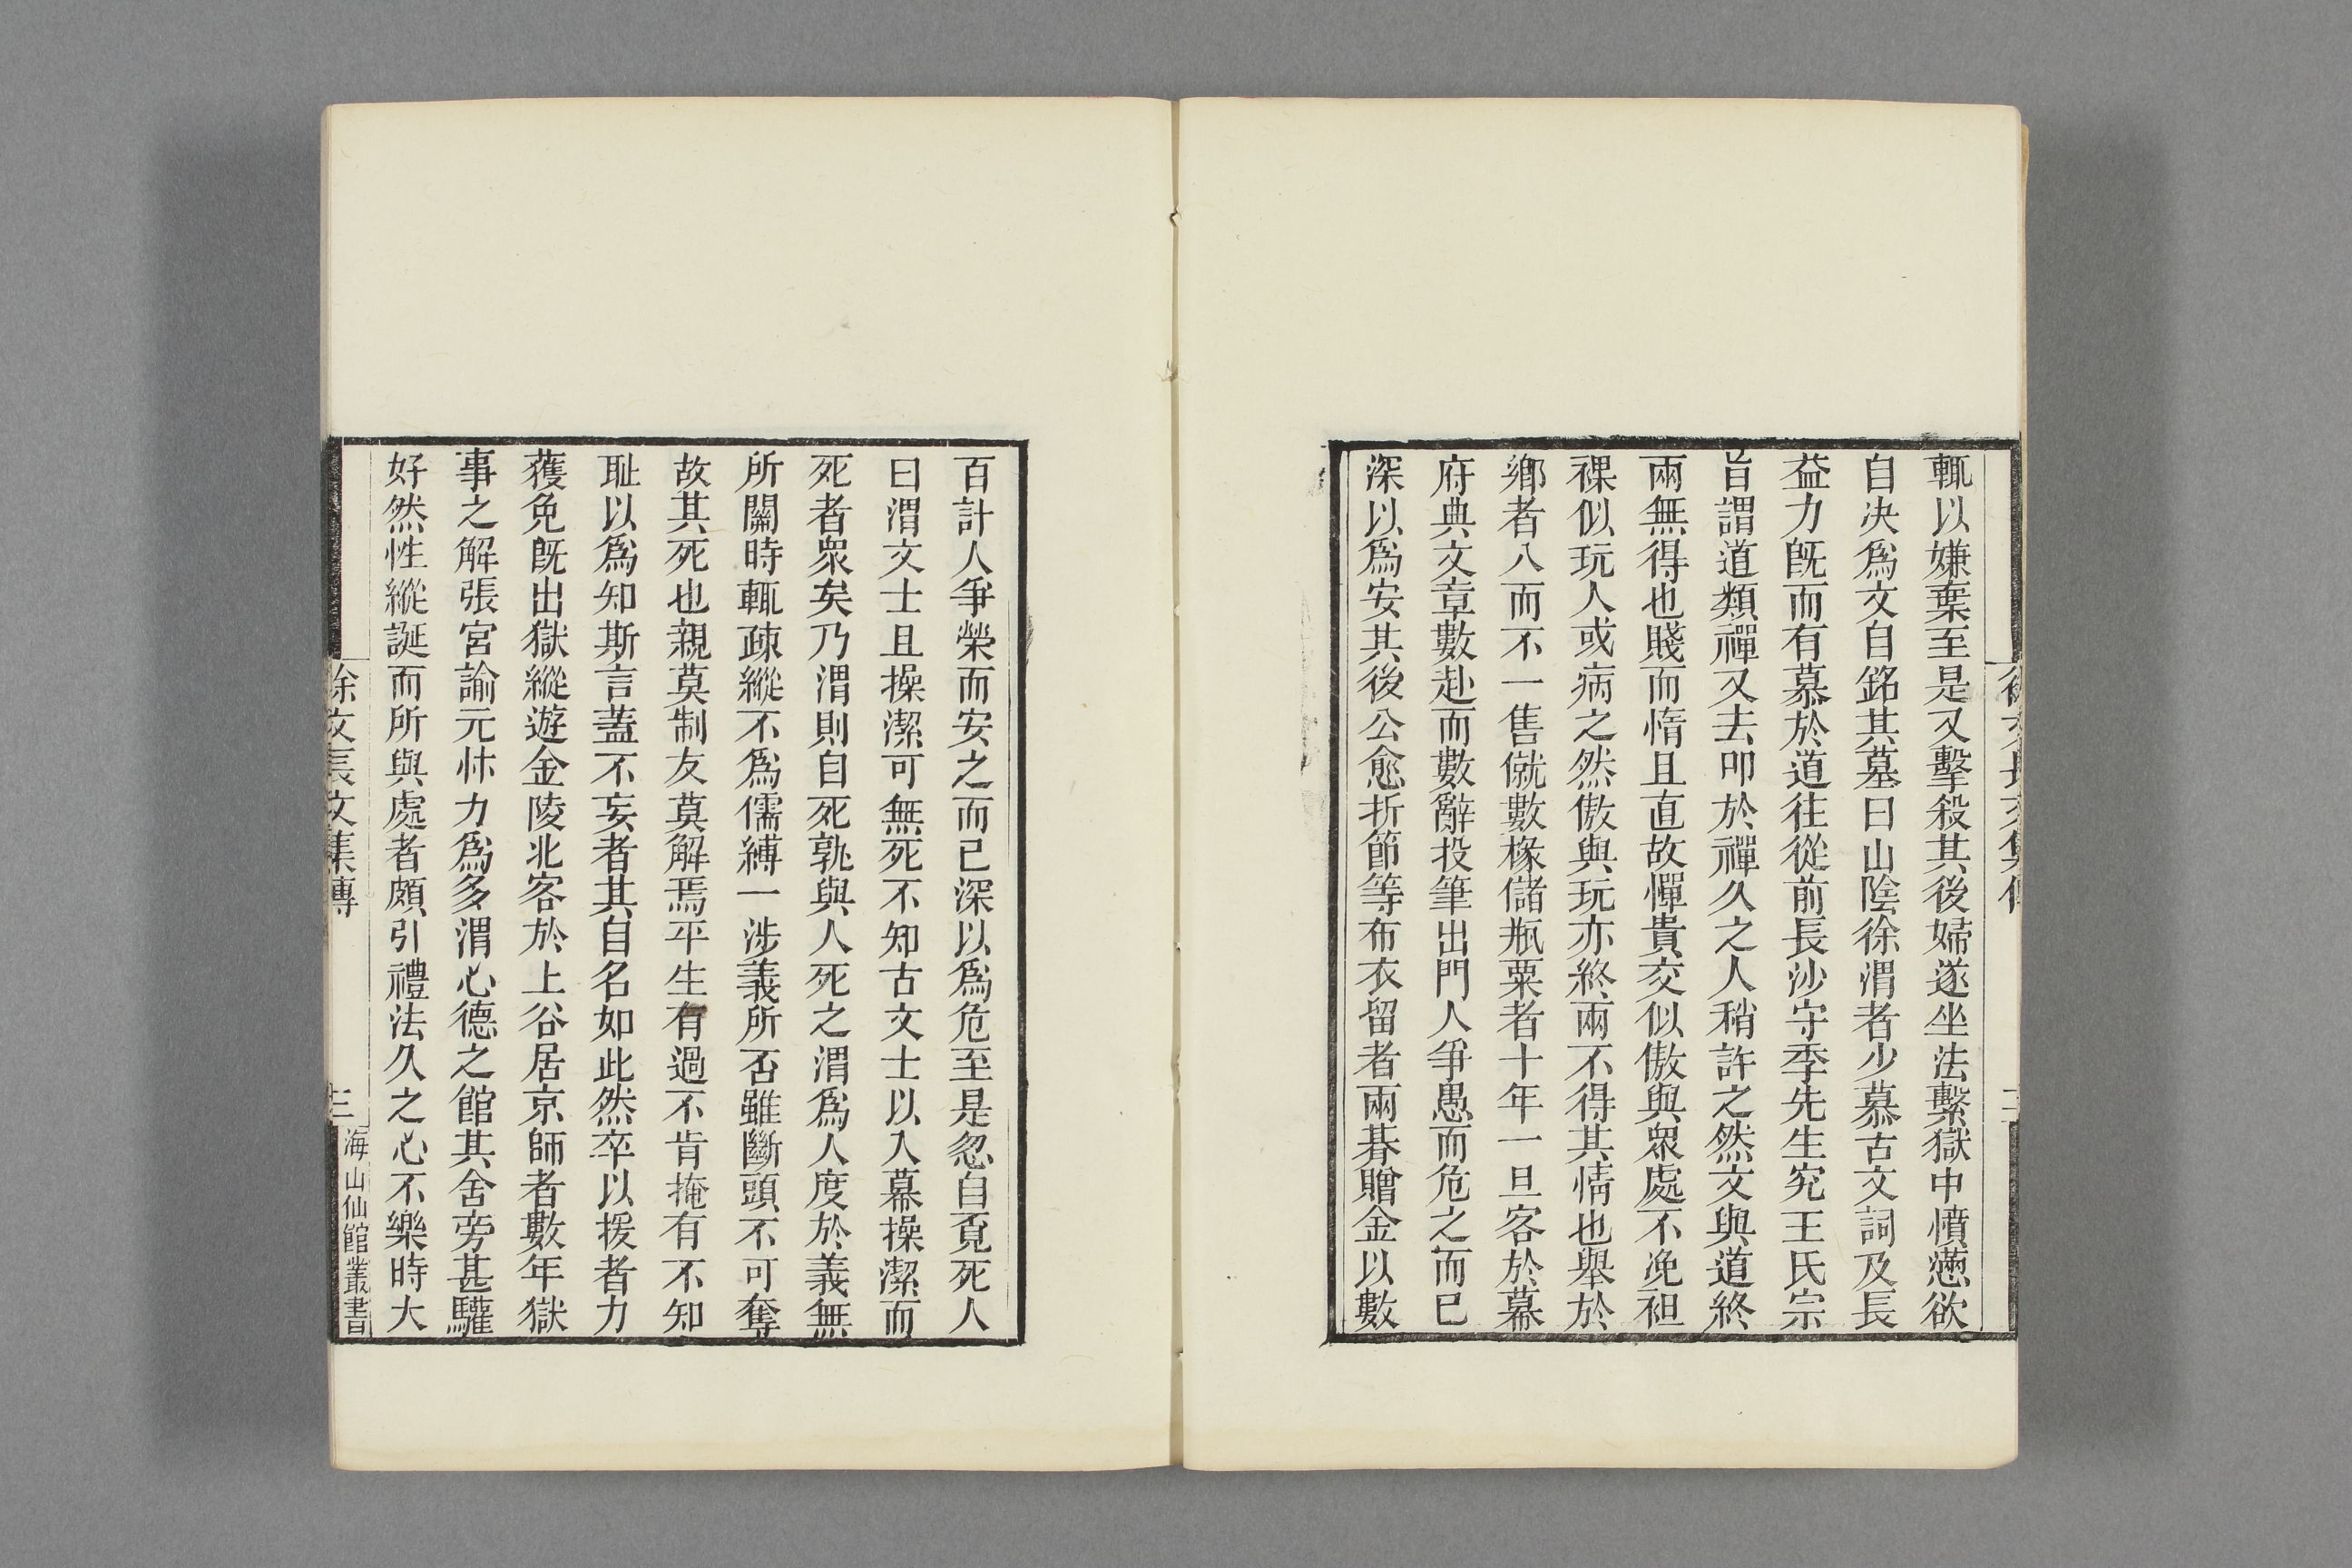 徐文長文集傳
二
輒以嫌棄至是又擊殺其後婦遂坐法繫獄中憤懣欲
自决爲文自銘其墓曰山陰徐渭者少慕古文詞及長
益力旣而有慕於道往從前長沙守季先生究王氏宗
旨謂道類禪又去叩於禪久之人稍許之然文與道終
兩無得也賤而惰且直故憚貴交似傲與衆處不浼袒
裸似玩人或病之然傲與玩亦終兩不得其情也舉於
鄉者八而不一售僦數椽儲瓶粟者十年一旦客於幕
府典文章數赴而數辭投筆出門人爭愚而危之而已
深以爲安其後公愈折節等布衣留者兩朞贈金以數
百計人爭榮而安之而已深以爲危至是忽自覓死人
曰渭文士且操潔可無死不知古文士以入幕操潔而
死者衆矣乃渭則自死孰與人死之渭爲人度於義無
所關時輒疎縱不爲儒縛一涉義所否雖斷頭不可奪
故其死也親莫制友莫解焉平生有過不肯掩有不知
耻以爲知斯言蓋不妄者其自名如此然卒以援者力
獲免旣出獄縱遊金陵北客於上谷居京師者數年獄
事之解張宮諭元忭力爲多渭心德之館其舍旁甚驩
好然性縱誕而所與處者頗引禮法久之心不樂時大
徐文長文集傳
三
海山仙館叢書